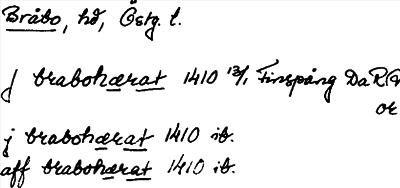 Bråbo, hd, Östg. l.
j brabohærat 1410 13/1 Finspång DaRA
or
j brabohærat 1410 ib.
aff brabohærat 1410 ib.